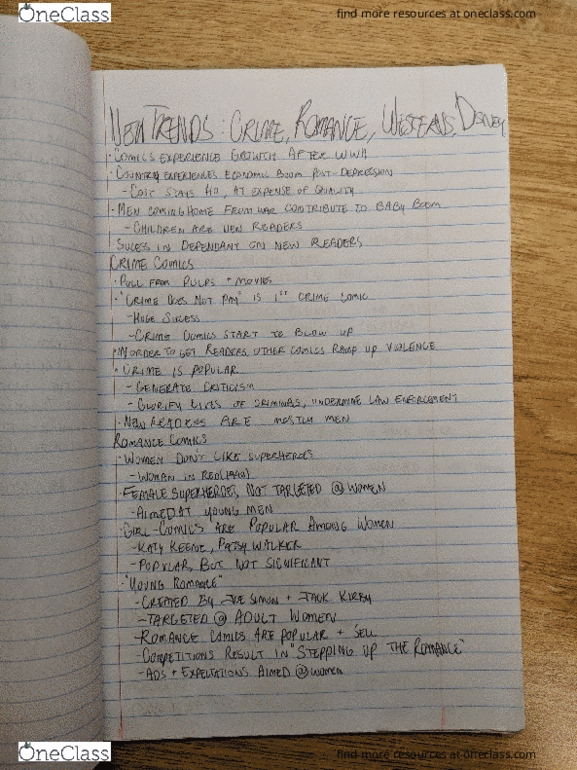 OneClass
find more resources at oneclass.com
NEW TRENDS: CRIME, ROMANCE, WESTERNS, DISNEY
· COMICS EXPERIENCE GROWTH AFTER WWII
· COUNTRY EXPERIENCES ECONOMIC BOOM POST-DEPRESSION
- COST STAYS 10¢, AT EXPENSE OF QUALITY
· MEN COMING HOME FROM WAR CONTRIBUTE TO BABY BOOM
- CHILDREN ARE NEW READERS
SUCESS IN DEPENDANT ON NEW READERS
CRIME COMICS
· PULL FROM PULPS + MOVIES
· "CRIME DOES NOT PAY" IS 1ST CRIME COMIC
- HUGE SUCESS
- CRIME COMICS START TO BLOW UP
· IN ORDER TO GET READERS, OTHER COMICS RAMP UP VIOLENCE
· CRIME IS POPULAR
- GENERATE CRITICISM
- GLORIFY LIVES OF CRIMINALS, UNDERMINE LAW ENFORCEMENT
· NEW READERS ARE MOSTLY MEN
ROMANCE COMICS
· WOMEN DON'T LIKE SUPERHEROES
- WOMAN IN RED
FEMALE SUPERHEROES, NOT TARGETED @ WOMEN
- AIMED AT YOUNG MEN
· GIRL-COMICS ARE POPULAR AMONG WOMEN
- KATY KEENE, PATSY WALKER
- POPULAR, BUT NOT SIGNIFICANT
· "YOUNG ROMANCE"
- CREATED BY JOE SIMON + JACK KIRBY
- TARGETED @ ADULT WOMEN
- ROMANCE COMICS ARE POPULAR + SELL
- COMPETITIONS RESULT IN "STEPPING UP THE ROMANCE"
- ADS + EXPECTATIONS AIMED @ WOMEN
OneClass
find more resources at oneclass.com